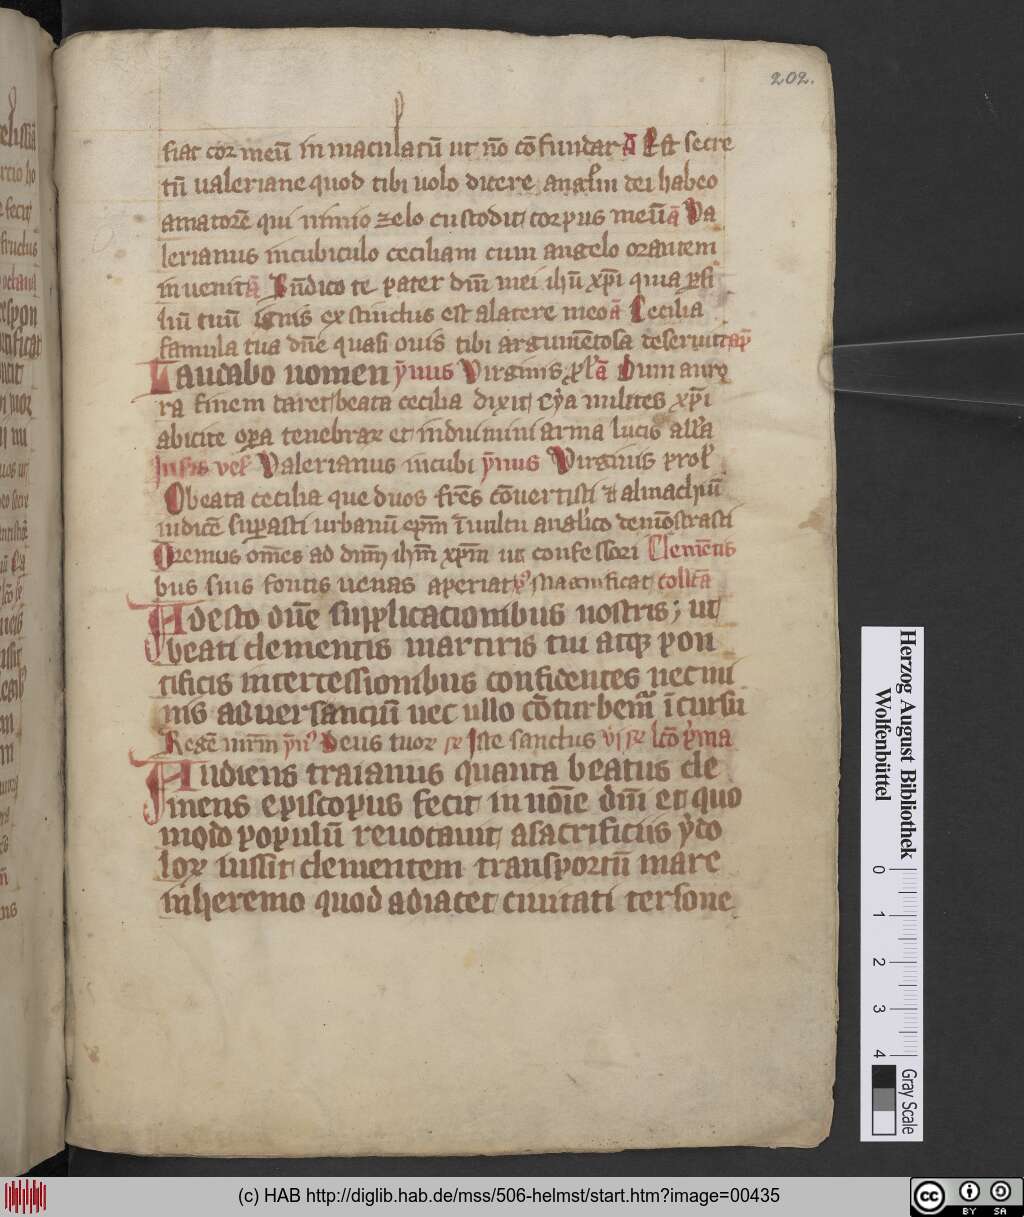 202.
fiat cor meū in maculatū ut nō cōfundar ā Est secre
tū ualeriane quod tibi uolo dicere angl'm dei habeo
amatorē qui nimio zelo custodit corpus meū ā Va
lerianus incubiculo ceciliam cum angelo orantem
inuenit ā Bn̄dico te pater dn̄i mei ih̄u xp̄i quia p fi
liū tuū ignis exstinctus est alatere meo ā Cecilia
famula tua dn̄e quasi ouis tibi argumētosa deseruit
Laudabo nomen ȳnus Virginis ā Dum auro
ra finem daret beata cecilia dixit eya milites xp̄i
abicite opa tenebrar et induimini arma lucis all'a
Valerianus incubi ȳnus Virginis prol'
O beata cecilia que duos fr̄es cōuertisti almachiū
iudicē supasti urbanū ep̄m ī uultu anal'ico demōstrasti
Oremus om̄es ad dn̄m ih̄m xp̄m ut confessori Clemētis
bus suis fontis uenas aperiat Magnificat coll'cā
Adesto dn̄e supplicacionibus nostris; ut
beati clementis martiris tui atq; pon
tificis intercessionibus confidentes nec mi
nis aduersanciū nec ullo cōturbem̄ ī cursu
Regē mr̄m Deus tuor Iste sanctus
Audiens traianus quanta beatus cle
mens episcopus fecit in noīe dn̄i et quo
modo populū reuocauit asacrificiis ydo
lor iussit clementem transportū mare
inheremo quod adiacet ciuitati tersone
Herzog August Bibliothek
Wolfenbüttel
0 1 2 3 4
Gray Scale
(c) HAB http://diglib.hab.de/mss/506-helmst/start.htm?image=00435
cc BY SA